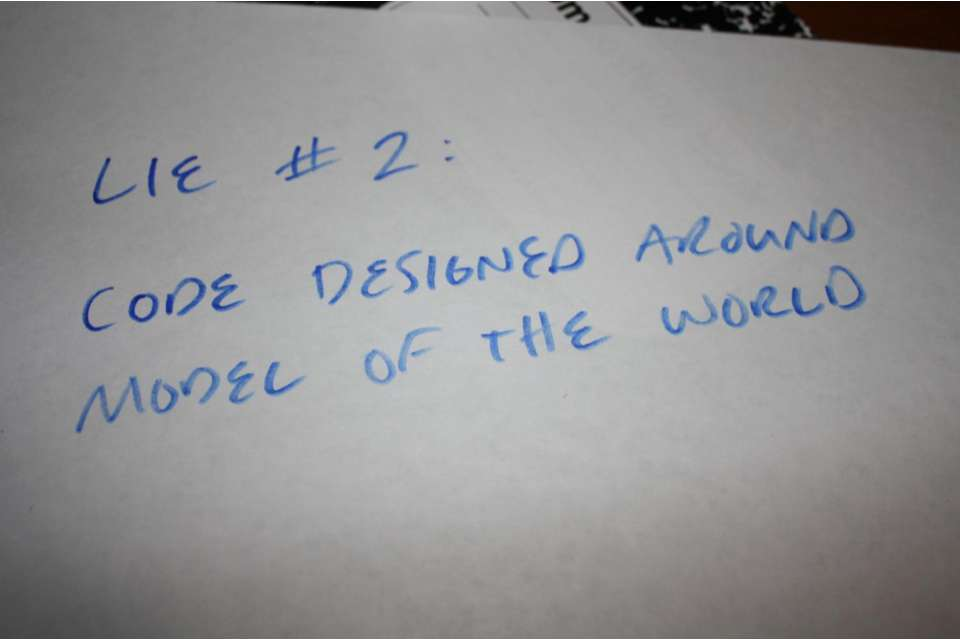 LIE # 2:
CODE DESIGNED AROUND
MODEL OF THE WORLD